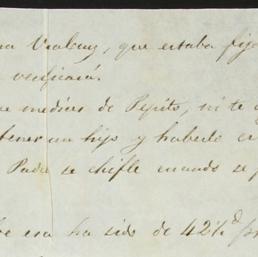 que estaba fij
verificará.
medias de Pepito, ni te
tener un hijo y haberlo
Padre se chifle cuando se
esa ha sido de 42½